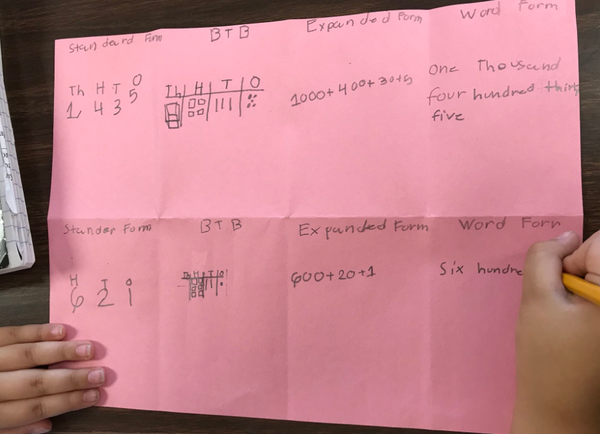 Standard Form BTB Expanded Form Word Form
Th H T O
1, 4 3 5
Th H T O
1000+400+30+5
One Thousand
four hundred thirty
five
Stander Form BTB Expanded Form Word Form
H T O
6 2 1
Th H T O
600+20+1
Six hundre